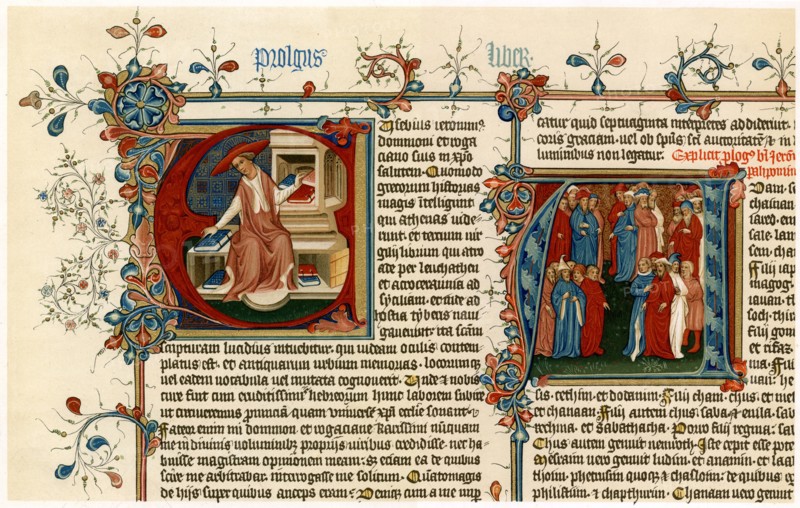 Prologus
Liber
Eusebius ieronimꝰ
domnioni et roga
ciano suis in xp̄o
salutem. Quomodo
grecorum historias
magis ītelligunt
qui athenas uide
runt. et tercium uir
gilij librum qui atro
ade per leuchathen
et acroceraunia ad
syciliam. et inde ad
hostia tyberis naui
gauerint. ita scām
scripturam lucidius intuebitur. qui iudeam oculis contem
platus est. et antiquarum urbium memorias. locorumqꝫ
uel eadem uocabula uel mutata cognouerit. Unde et nobis
cure fuit cum eruditissimis hebreorum hunc laborem subire
ut circuiremus prouinciā quam uniuerse xp̄i ecclie sonant.
Fateor enim mi domnion et rogaciane karissimi nūquam
me in diuinis uoluminibꝫ proprijs uiribus credidisse. nec ha
buisse magistram opinionem meam: sꝫ eciam ea de quibus
scire me arbitrabar. interogasse me solitum. Quātomagis
de hijs super quibus anceps eram. Deniqꝫ cum a me
catur quid septuaginta interpretes addiderīt.
coris graciam. uel ob spūs sci auctoritatē
luminibus non legatur. Explicit plogꝰ
Adam
sus. cethim. et dodanim. Filij cham. chus. et
et chanaan. Filij autem chus. saba et euila. sab
rechma. et sabathacha. Porro filij regma. sa
Chus autem genuit nemroth. Iste cepit esse pote
Mesraim uero genuit ludim. et anamin. et laa
thoim. phetrusim quoqꝫ et chasloim. de quibus
philistiim. et chapthurim. Chanaan uero genuit